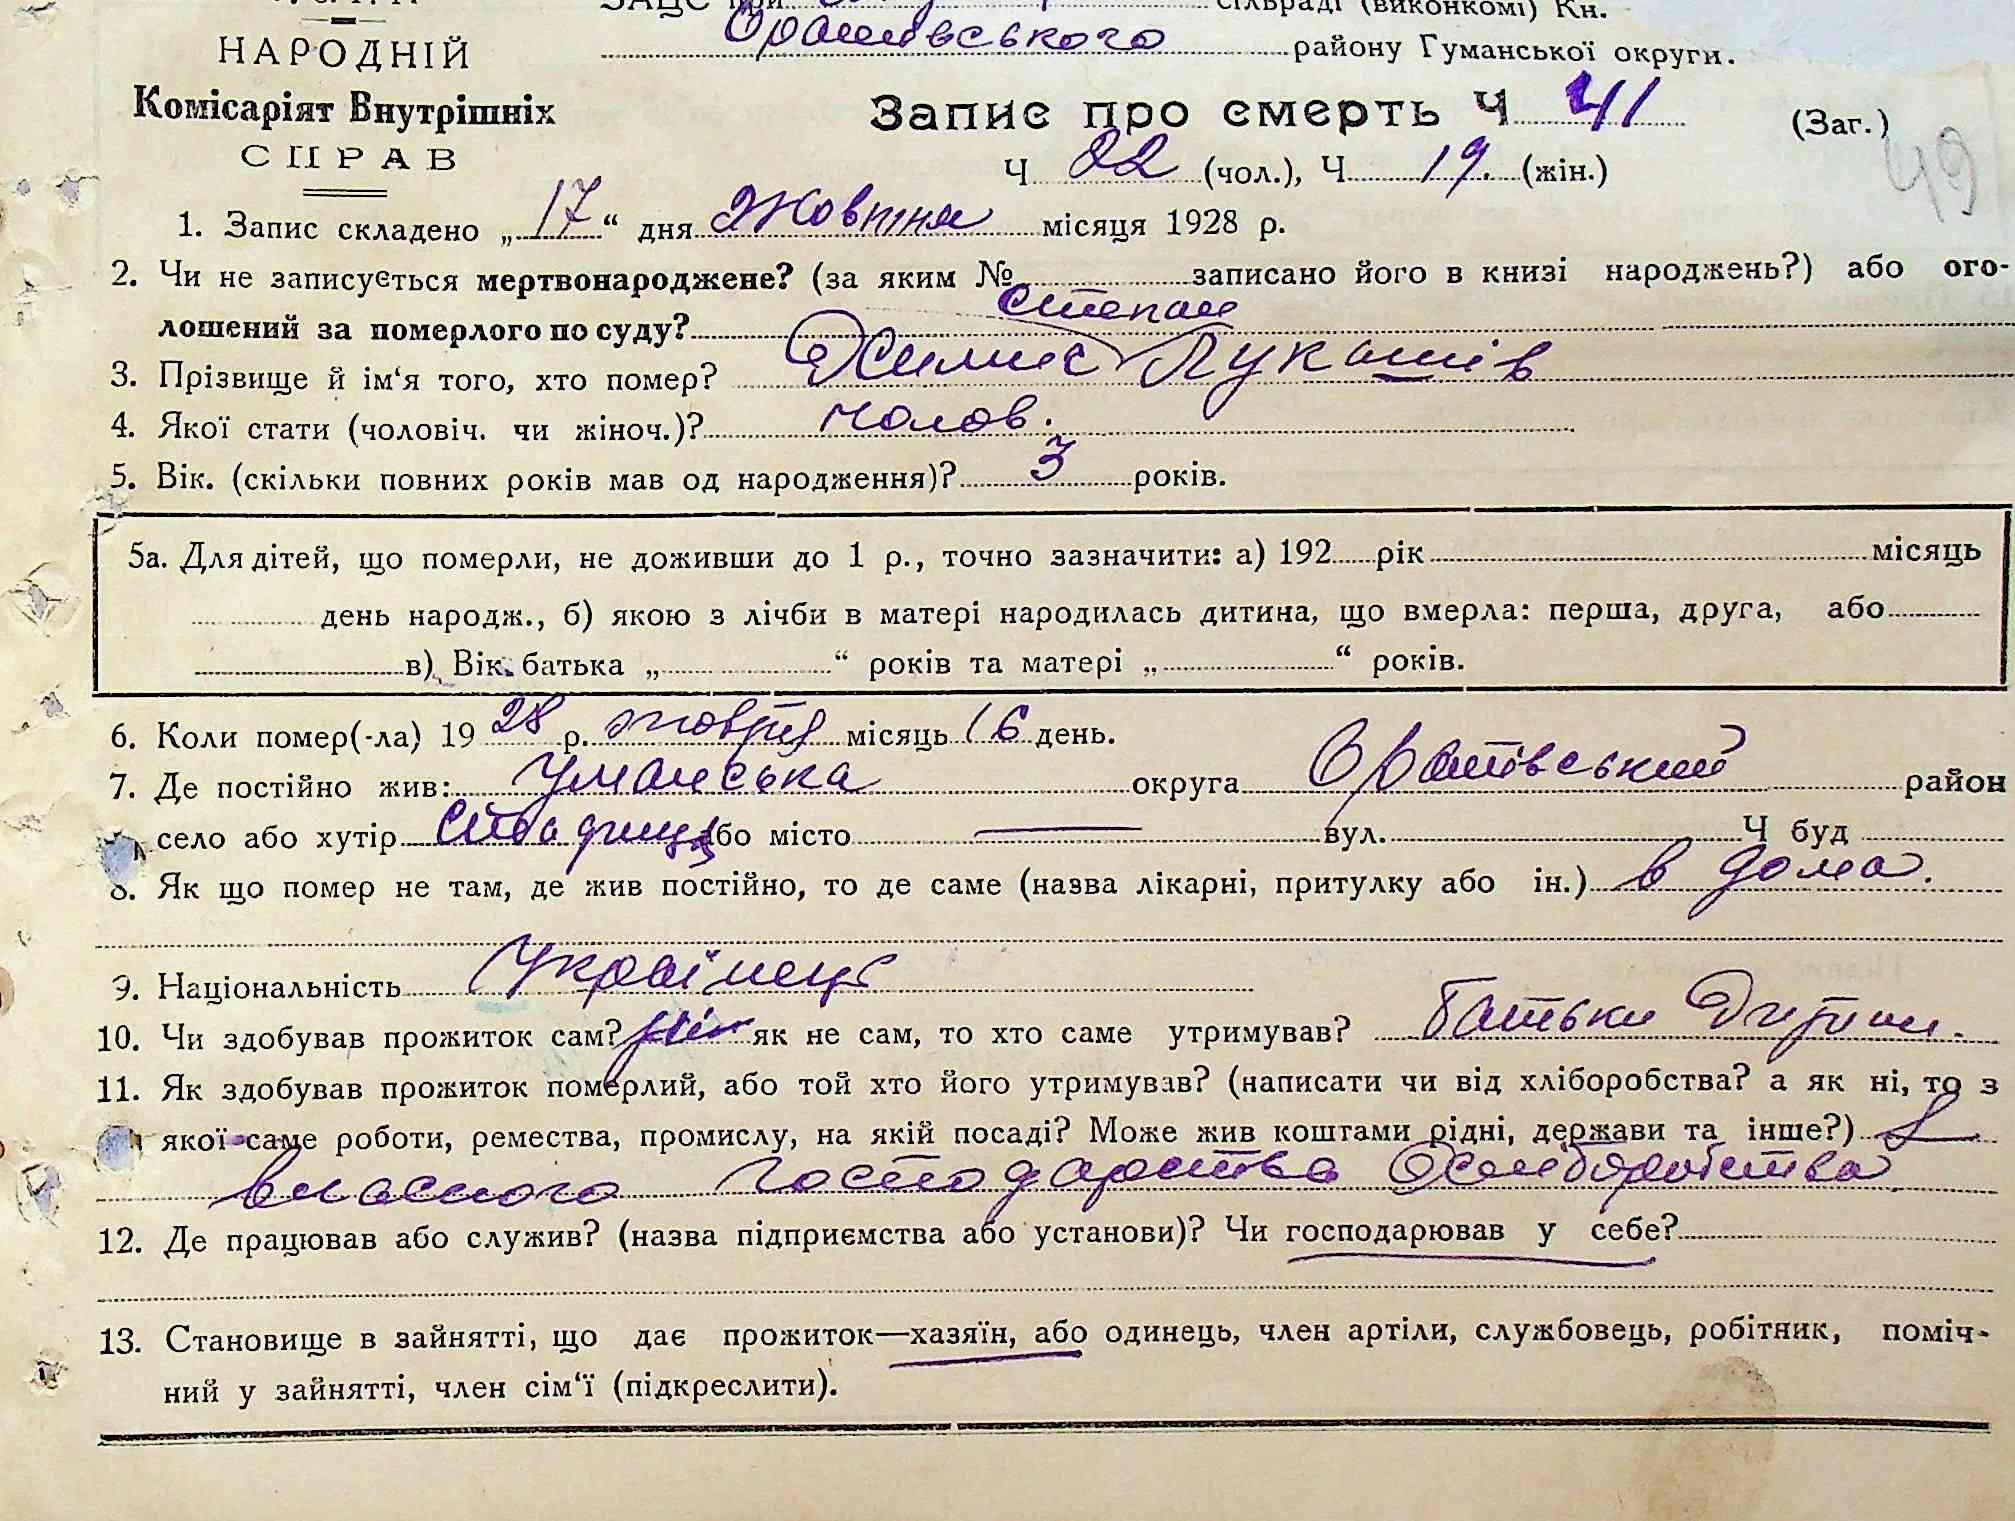 ЗАЦС при сільраді (виконкомі) Кн.
НАРОДНІЙ
Оратівського району Гуманської округи.
Комісаріят Внутрішніх
СПРАВ
Запис про смерть Ч 41 (Заг.)
49
Ч 22 (чол.), Ч 19. (жін.)
1. Запис складено „17“ дня Жовтня місяця 1928 р.
2. Чи не записується мертвонароджене? (за яким № записано його в книзі народжень?) або ого-
лошений за померлого по суду?
Степан
3. Прізвище й ім‘я того, хто помер? Лукашів
4. Якої стати (чоловіч. чи жіноч.)? чолов.
5. Вік. (скільки повних років мав од народження)? 3 років.
5а. Для дітей, що померли, не доживши до 1 р., точно зазначити: а) 192 рік місяць
день народж., б) якою з лічби в матері народилась дитина, що вмерла: перша, друга, або
в) Вік. батька „ “ років та матері „ “ років.
6. Коли помер(-ла) 1928 р. жовтня місяць 16 день.
7. Де постійно жив: Уманська округа Оратівський район
село або хутір Стадниця або місто — вул. Ч буд
8. Як що помер не там, де жив постійно, то де саме (назва лікарні, притулку або ін.) в дома.
9. Національність Українець
10. Чи здобував прожиток сам? Ні як не сам, то хто саме утримував? батьки Дитини.
11. Як здобував прожиток померлий, або той хто його утримував? (написати чи від хліборобства? а як ні, то з
якої саме роботи, ремества, промислу, на якій посаді? Може жив коштами рідні, держави та інше?)
власного господарства Хліборобства
12. Де працював або служив? (назва підприємства або установи)? Чи господарював у себе?
13. Становище в зайнятті, що дає прожиток—хазяїн, або одинець, член артіли, службовець, робітник, поміч-
ний у зайнятті, член сім‘ї (підкреслити).